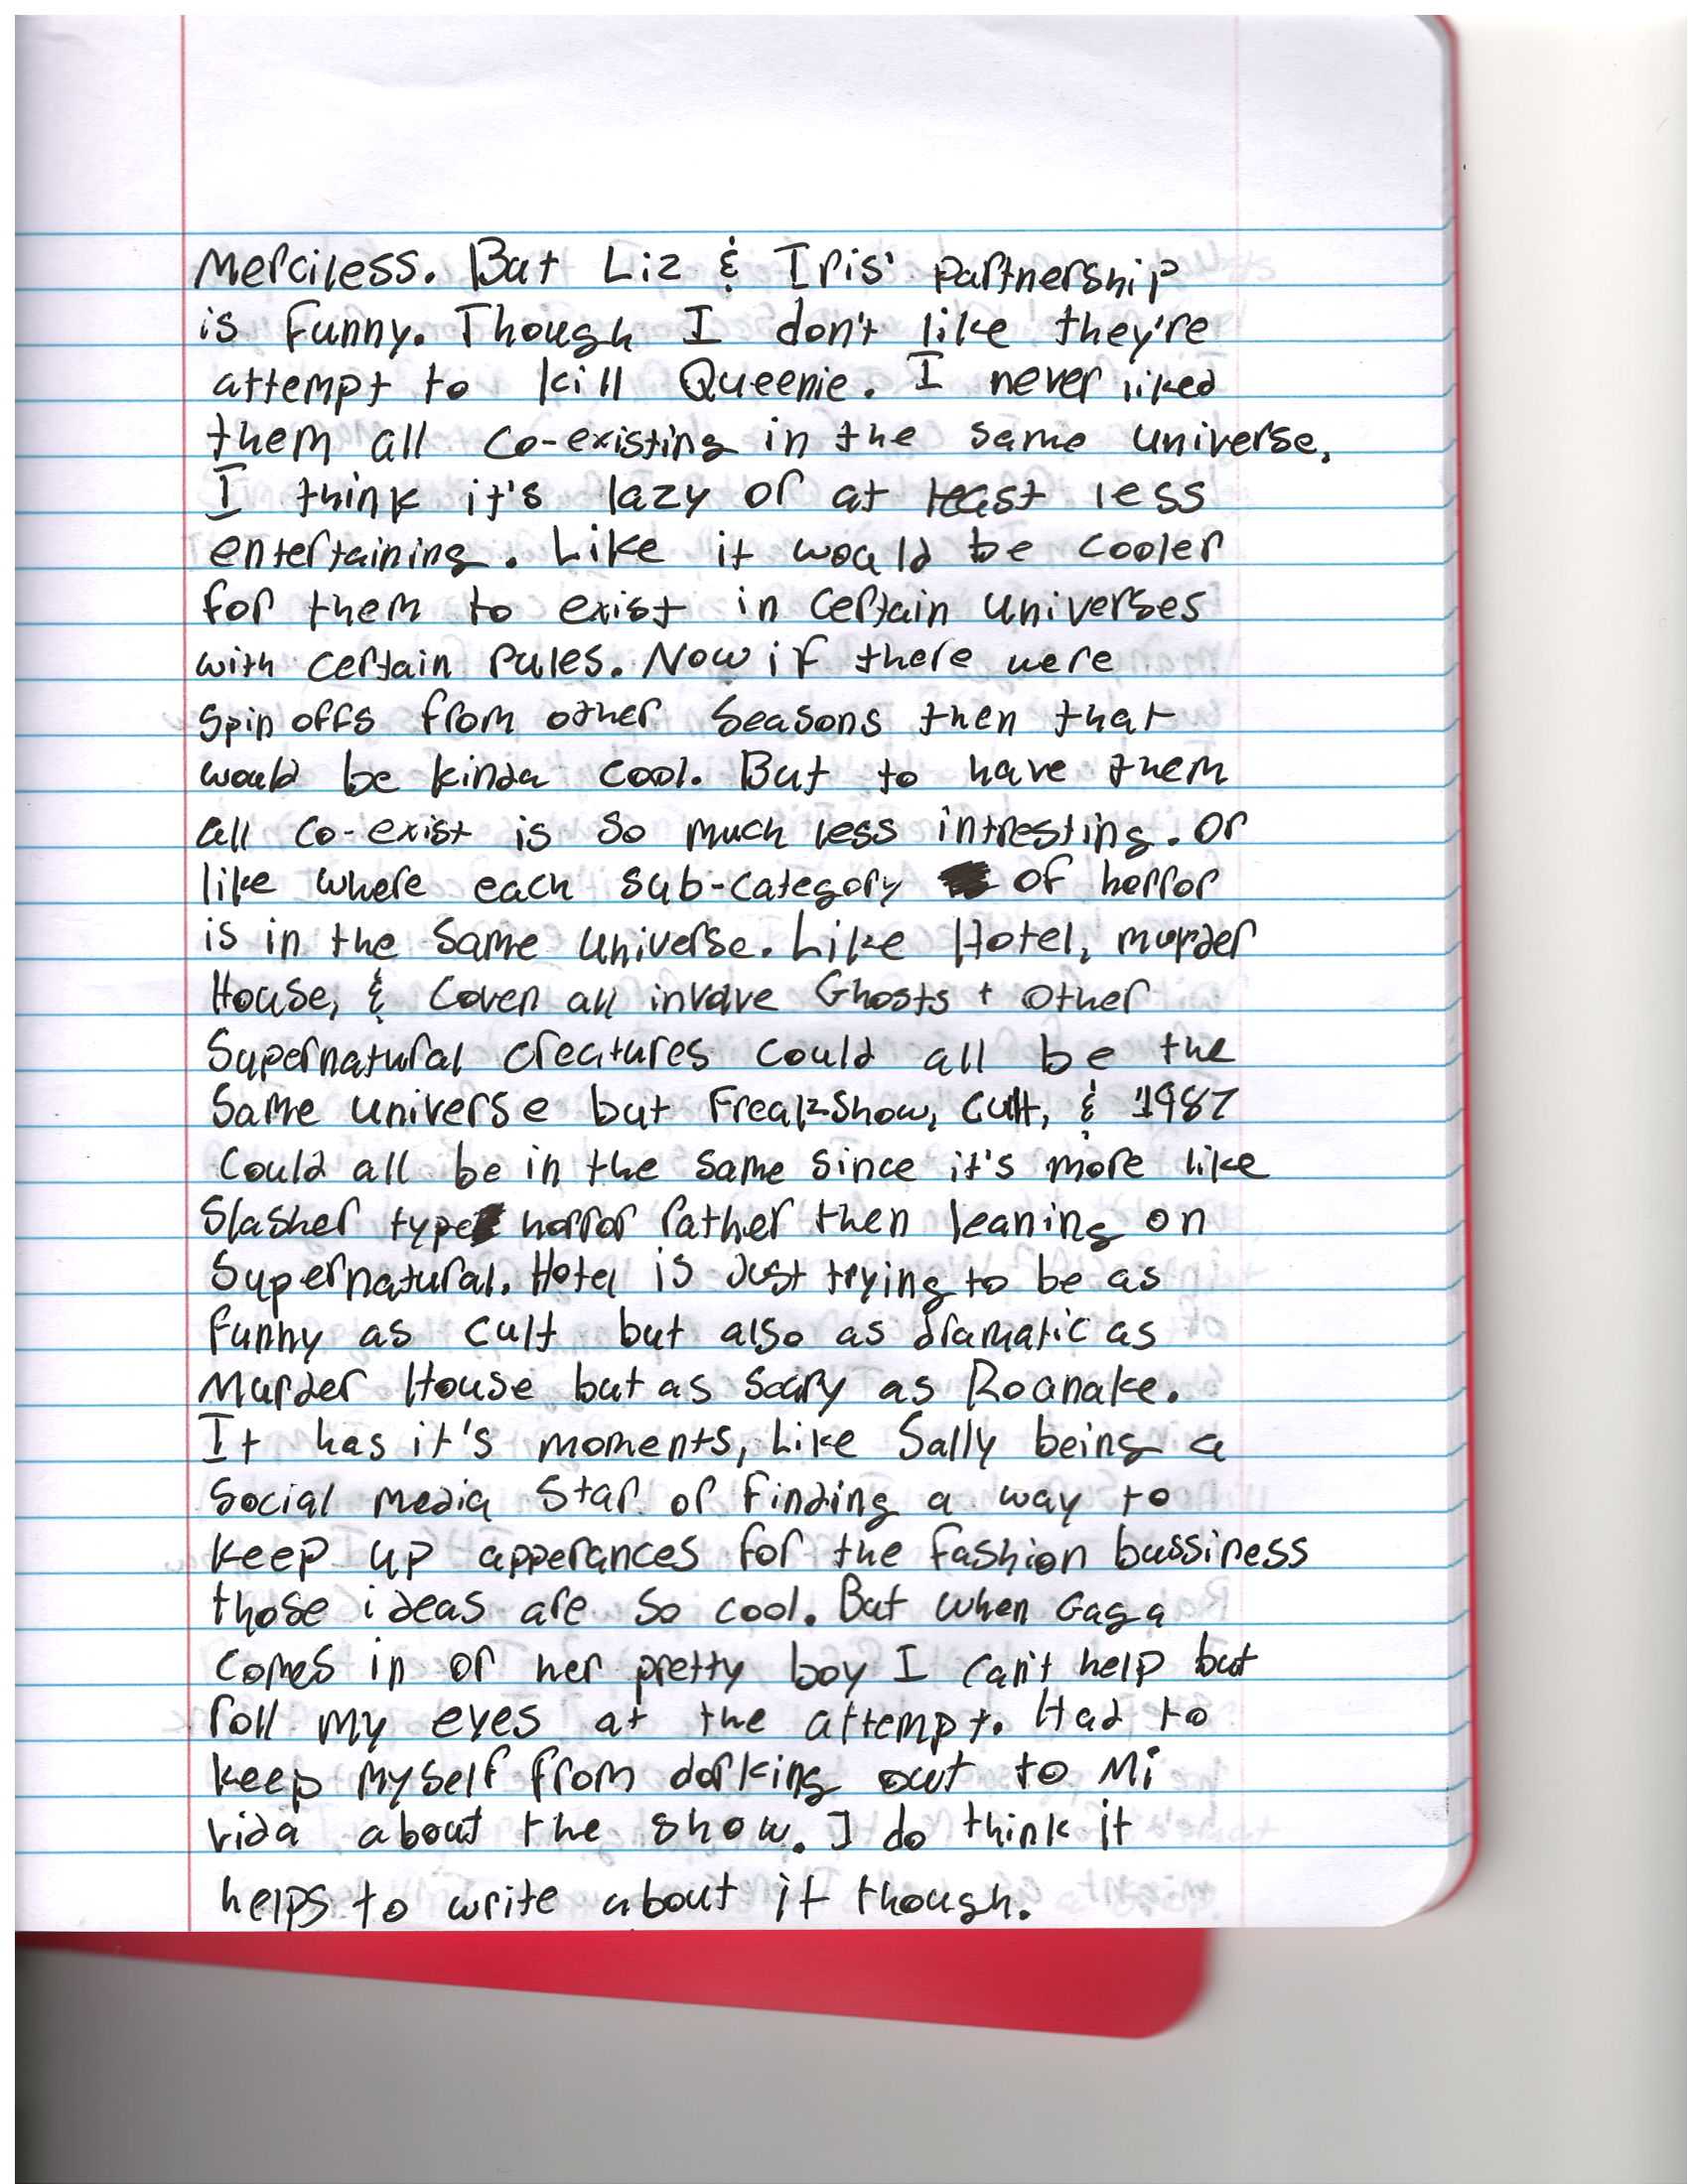 Merciless. But Liz & Iris' partnership
is funny. Though I don't like they're
attempt to kill Queenie. I never liked
them all co-existing in the same universe.
I think it's lazy or at least less
entertaining. Like it would be cooler
for them to exist in certain universes
with certain rules. Now if there were
spin offs from other seasons then that
would be kinda cool. But to have them
all co-exist is so much less intresting. Or
like where each sub-category of horror
is in the same universe. Like Hotel, Murder
House, & Coven all involve Ghosts + other
Supernatural creatures could all be the
Same universe but FreakShow, Cult, & 1987
Could all be in the same since it's more like
Slasher type horror rather then leaning on
Supernatural. Hotel is Just trying to be as
funny as Cult but also as dramatic as
Murder House but as scary as Roanake.
It has it's moments, Like Sally being a
Social media star or finding a way to
keep up apperances for the fashion bussiness
those ideas are so cool. But when Gaga
comes in or her pretty boy I can't help but
roll my eyes at the attempt. Had to
keep myself from dorking out to Mi
vida about the show. I do think it
helps to write about it though.